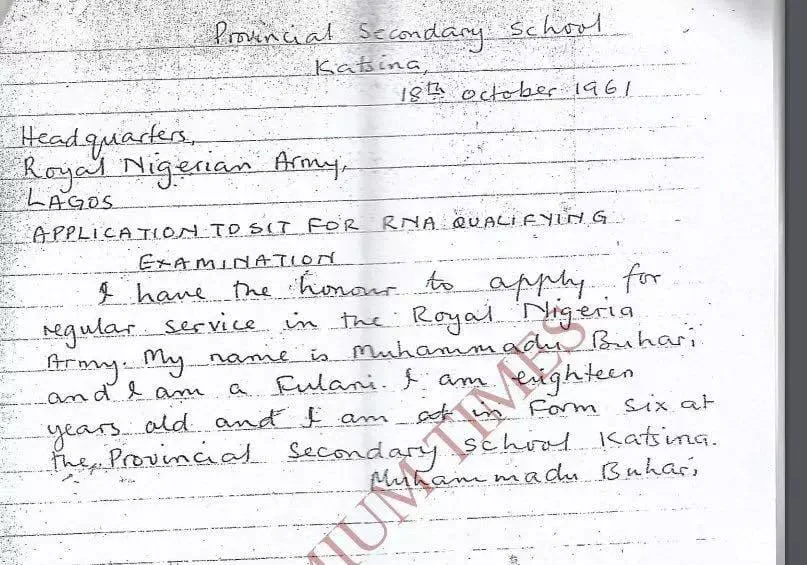 Provincial Secondary School
Katsina,
18th October 1961
Headquarters,
Royal Nigerian Army,
LAGOS
APPLICATION TO SIT FOR RNA QUALIFYING
EXAMINATION
I have the honour to apply for
regular service in the Royal Nigeria
Army. My name is Muhammadu Buhari
and I am a Fulani. I am eughteen
years old and I am at in Form six at
the, Provincial Secondary School Katsina.
Muhammadu Buhari
MIUM TIMES